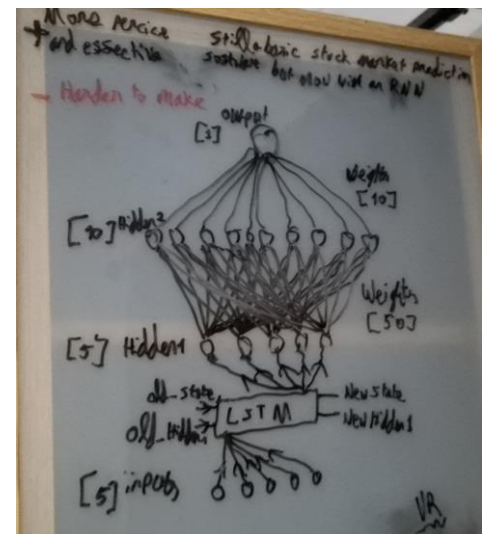 + More percice
and essective
still a basic stock market prediction
software but now with an RNN
- Harder to make
output
[1]
Weights
[10]
[10] Hidden2
Weights
[50]
[5] Hidden1
old_state
LSTM
New State
old_Hidden1
New Hidden1
[5] inputs
VR